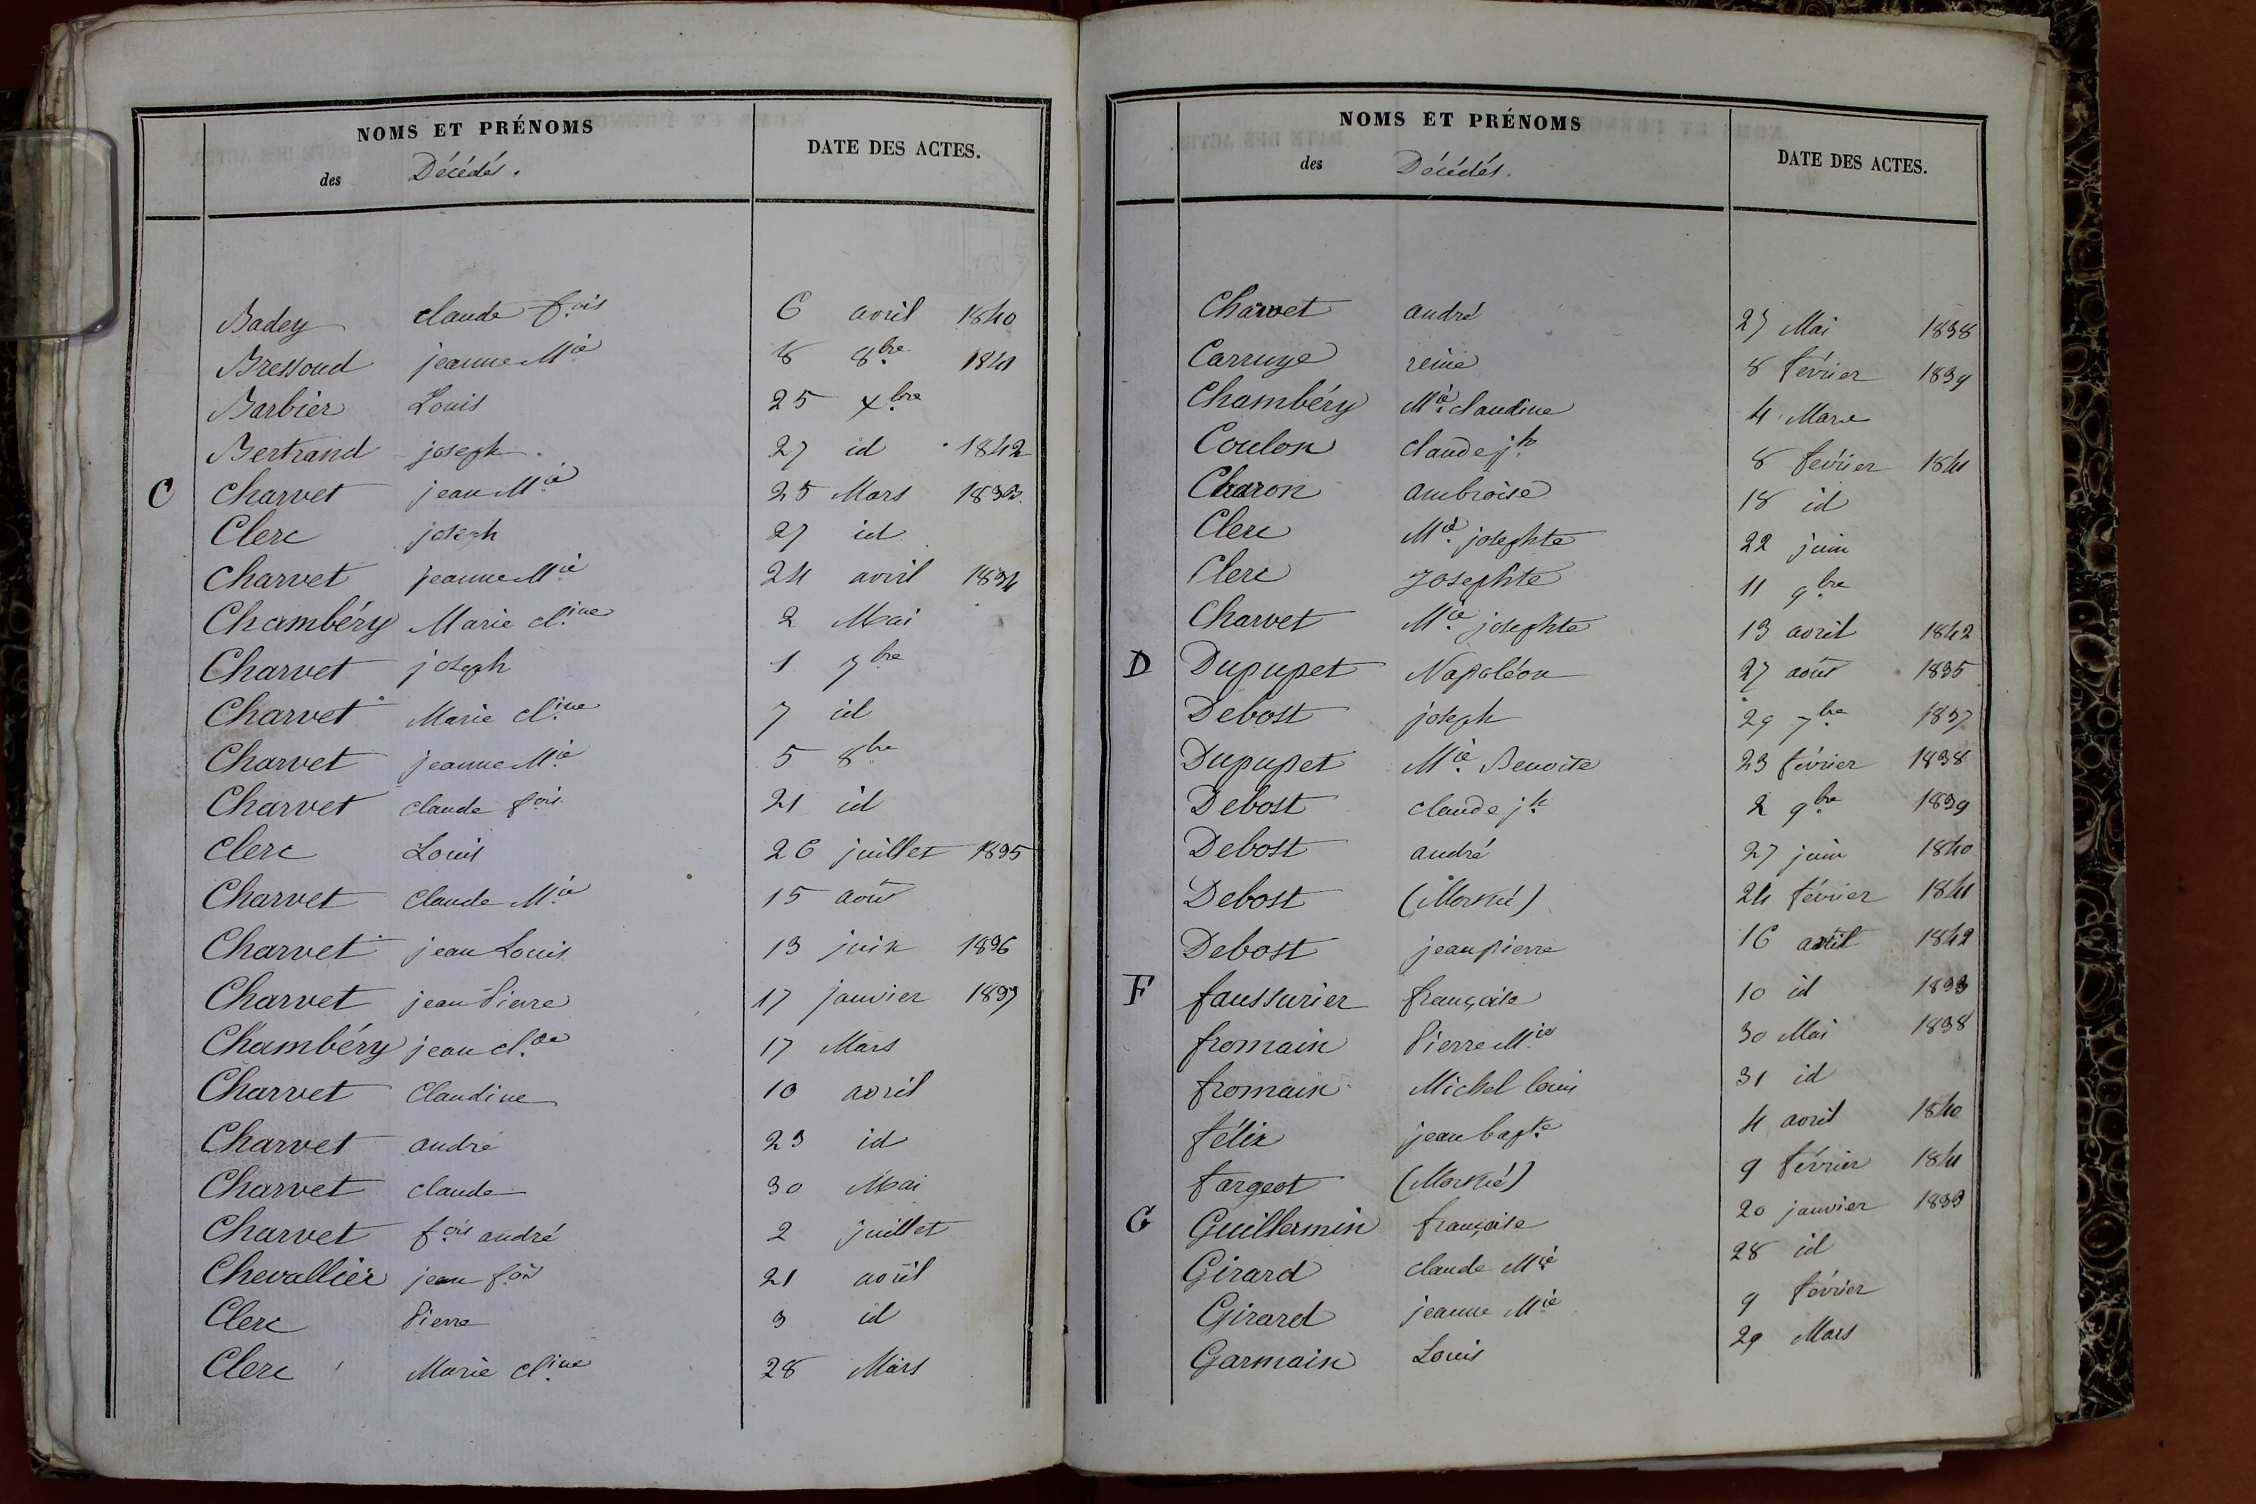 NOMS ET PRÉNOMS
des Décédés.
DATE DES ACTES.
Badey claude f.ois 6 avril 1840
Bressoud jeanne M.ie 8 8.bre 1841
Barbier Louis 25 x.bre
Bertrand joseph 27 id 1842
C Charvet jean M.ie 25 Mars 1833
Clerc joseph 27 id
Charvet jeanne M.ie 24 avril 1834
Chambéry Marie cl.ine 2 Mai
Charvet joseph 1 7bre
Charvet Marie cl.ine 7 id
Charvet jeanne M.ie 5 8bre
Charvet claude f.ois 21 id
Clerc Louis 26 juillet 1835
Charvet claude M.ie 15 août
Charvet jean Louis 13 juin 1836
Charvet jean Pierre 17 janvier 1837
Chambéry jean cl.de 17 Mars
Charvet Claudine 10 avril
Charvet andré 23 id
Charvet claude 30 Mai
Charvet f.ois andré 2 juillet
Chevallier jean f.ois 21 août
Clerc Pierre 3 id
Clerc Marie cl.ine 28 Mars
NOMS ET PRÉNOMS
des Décédés.
DATE DES ACTES.
Charvet andré 27 Mai 1838
Carruge reine 8 février 1839
Chambéry M.ie claudine 4 Mars
Coulon claude j.h 8 février 1841
Charon ambroise 18 id
Clerc M.ie josephte 22 juin
Clerc Josephte 11 9bre
Charvet M.ie josephte 13 avril 1842
D Dupupet Napoléon 27 août 1835
Debost joseph 29 7.bre 1837
Dupupet M.ie Benoite 23 février 1838
Debost claude j.h 2 9.bre 1839
Debost andré 27 juin 1840
Debost (Morné) 24 février 1841
Debost jean pierre 16 avril 1842
F faussurier françoise 10 id 1833
fromain Pierre M.ie 30 Mai 1838
fromain Michel louis 31 id
félix jean bapt.e 4 avril 1840
fargeot (Morné) 9 février 1841
G Guillermin françoise 20 janvier 1833
Girard claude M.ie 28 id
Girard jeanne M.ie 9 février
Garmain Louis 29 Mars